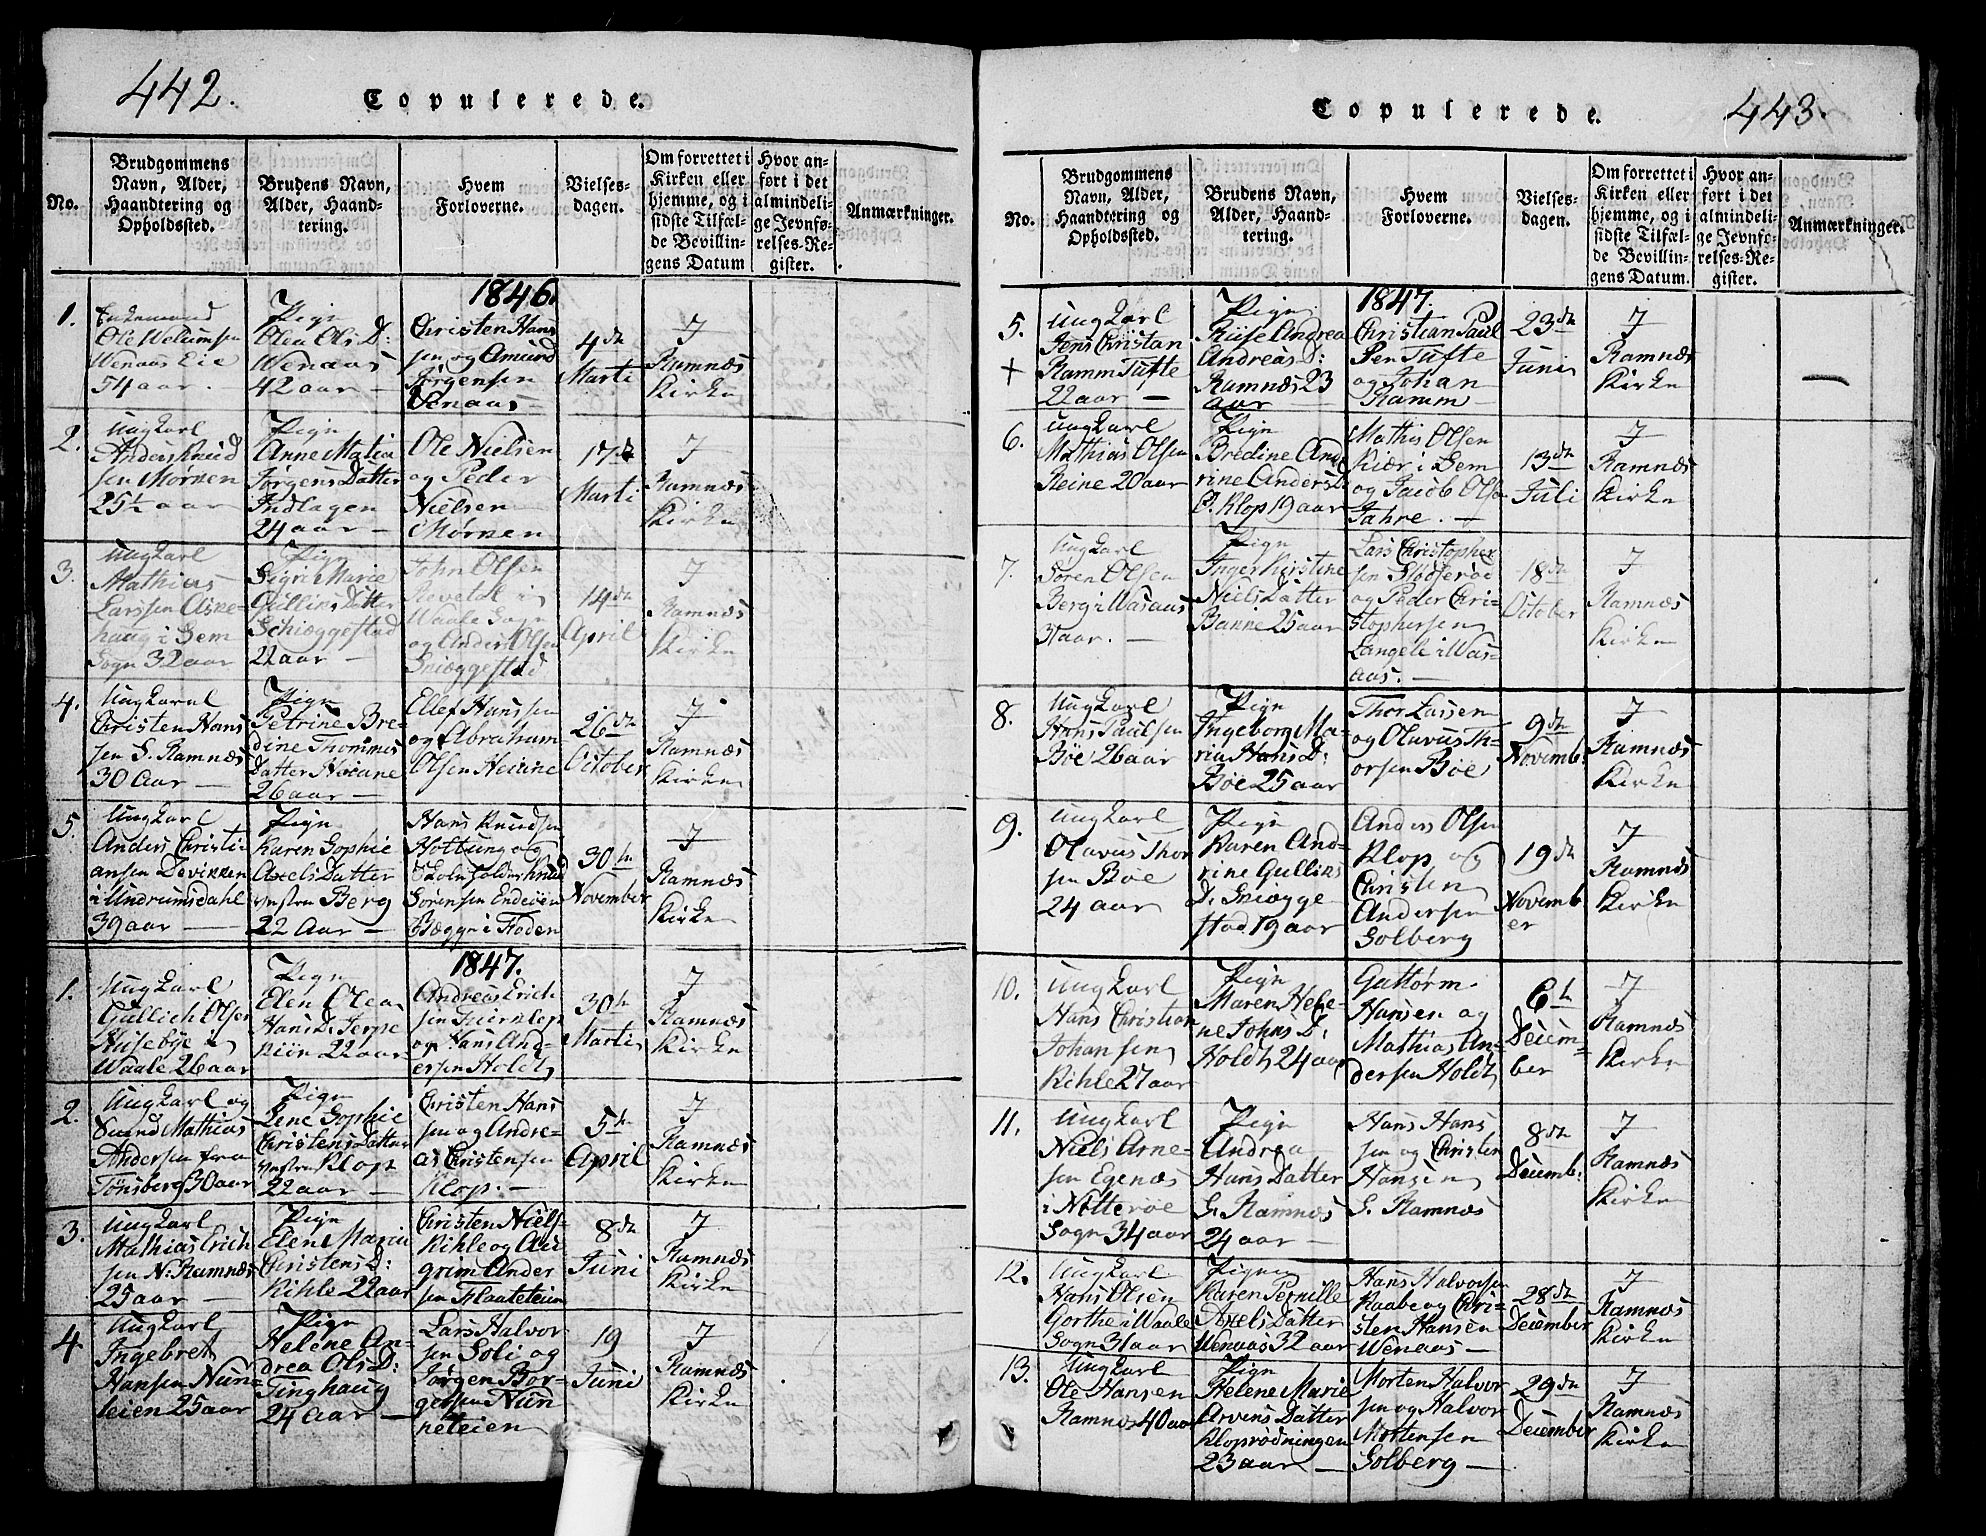 442.
Copulerede.
No.
Brudgommens
Navn, Alder,
Haandtering og
Opholdssted.
Brudens Navn,
Alder, Haand-
tering.
Hvem
Forloverne.
Vielses-
dagen.
Om forrettet i
Kirken eller
hjemme, og i
sidste Tilfæl-
de Bevillin-
gens Datum
Hvor an-
ført i det
almindeli-
ge Jevnfø-
relses-Re-
gister.
Anmærkninger.
1846.
1.
Enkemand
Ole
Wenaas Eie
54 aar.
Pign
Olea Ols D:
Wenaas
42 aar —
Christen Hans
sen og Amund
Jørgensen
Venaas —
4de
Marti
I
Ramnæs
Kirke
2.
Ungkarl
Anders Knud
sen Mørken
25½ aar
Pign
Anne Maria
Jørgens Datter
Indlagen
24 aar —
Ole Nielsen
og Peder
Nielsen
Mørken
17de
Marti
I
Ramnæs
Kirke
3.
Ungkarl
Mathias
Larssen Aske-
haug i Sem
Sogn 32 aar
Pign
Sigri Marie
Gulliks Datter
Schiæggestad
22 aar —
John Olsen
Revetal i
Waale Sogn
og Anders Olsen
Sciæggestad
14de
April
I
Ramnæs
Kirke
4.
Ungkarl
Christen Hans
sen S. Ramnæs
30 Aar —
Pign
Petrine Bre-
dine Thommes
Datter Hoiane
26 aar —
Ellef Hanssen
og Abraham
Olsen Heiane
26de
October
I
Ramnæs
Kirke
5.
Ungkarl
Anders Christi-
ansen Deviken
i Undrumsdahl
39 aar —
Pign
Karen Sophie
Axels Datter
Berg
22 Aar —
Hans Knudsen
Hottung og
Skoleholder Knud
Sørensen
30te
November
I
Ramnæs
Kirke
1847.
1.
Ungkarl
Gullich Olsen
Husebye i
Waale 26 aar
Pign
Elen Olea
Hans D. Jerpe
kiön 22 aar
Andreas Erich
sen Klop
og Hans And-
ersen Holdt
30te
Marti
I
Ramnæs
Kirke
2.
Ungkarl og
Svend Mathias
Andersen fra
Tönsberg 30 aar
Pign
Lene Sophie
Christens Datter
Klop
22 aar —
Christen Hans
sen og Andre-
as Christensen
Klop. —
5te
April
I
Ramnæs
Kirke
3.
Ungkarl
Mathias Erich
sen N: Ramnæs
25 aar —
Pign
Elen Maria
Christens D:
Kihle 22 aar
Christen Niels
Kihle og An
grim Ander
sen Flaateteien
8de
Juni
I
Ramnæs
Kirke
4.
Ungkarl
Ingebret
Hansen Nun-
teien 25 aar
Pign
Helene An-
drea Ols D:
Tinghaug
24 Aar —
Lars Halvor
sen Soli og
Jørgen Bor-
gersen Nun
neteien
19
Juni
I
Ramnæs
Kirke
Copulerede.
443.
No.
Brudgommens
Navn, Alder,
Haandtering og
Opholdssted.
Brudens Navn,
Alder, Haand-
tering.
Hvem
Forloverne.
Vielses-
dagen.
Om forrettet i
Kirken eller
hjemme, og i
sidste Tilfæl-
de Bevillin-
gens Datum.
Hvor an-
ført i det
almindeli-
ge Jevnfø-
relses-Re-
gister.
Anmærkninger.
1847.
5.
+
Ungkarl
Jens Christian
Ramm Tufte
22 aar —
Pign
Andrea
Andreas D:
Ramnæs 23
aar
Christian Paul
sen Tufte
og Johan
Ramm —
23de
Juni
I
Ramnæs
Kirke
—
6.
Ungkarl
Mathias Olsen
Reine 20 aar
Pign
Bredine And
rine Anders D
Klop 19 aar
Mathis Olsen
Kiær i Sem
og Jacob Olsen
Jahre. —
13de
Juli
I
Ramnæs
Kirke
7.
Ungkarl
Søren Olsen
Berg i Wasaas
31 aar. —
Pign
Inger Kirstine
Niels Datter
Banne 25 aar
Lars Christopher
sen
og Peder Chri-
stophersen
Langeli i Was-
aas. —
18de
October
I
Ramnæs
Kirke
8.
Ungkarl
Hans Paulsen
Böe 26 aar
Pign
Ingeborg Ma-
ria Hans D:
Böe 25 aar
Thor Lassen
og Olavus Th-
orsen Böe
9de
Novemb:
I
Ramnæs
Kirke
9.
Ungkarl
Olavus Thor
sen Böe
24 aar
Pign
Karen And-
rine Gulliks
D. Sciægge
stad 19 aar
Anders Olsen
Klop og
Christen
Andersen
Solberg
19de
Novemb
er
I
Ramnæs
Kirke
10.
Ungkarl
Hans Christian
Johansen
Kihle 27 aar
Pign
Maren Hele-
ne Johns D:
Holdt 24 aar
Guttorm
Hansen og
Mathias An-
dersen Holdt
6t
Decem=
ber
I
Ramnæs
Kirke
11.
Ungkarl
Niels Arne-
sen Egenæs
i Nötteröe
Sogn 34 aar
Pign
Andrea
Hans Datter
S. Ramnæs
24 aar —
Hans Hans
sen og Christen
Hansen
S. Ramnæs
8de
Decemb:
I
Ramnæs
Kirke
12.
Ungkarl
Hans Olsen
Gorthe i Waale
Sogn 31 aar
Pigen
Karen Pernille
Axels Datter
Wenaas 32 aar
Hans Halvorsen
Raabe og Chri-
sten Hansen
Wenaas —
28de
December
I
Ramnæs
Kirke
13.
Ungkarl
Ole Hansen
Ramnæs 40 aar
Pign
Helene Marie
Arvens Datter
Kloprödningen
23 aar —
Morten Halvor
sen og Halvor
Mortensen
Solberg —
29de
December
I
Ramnæs
Kirke